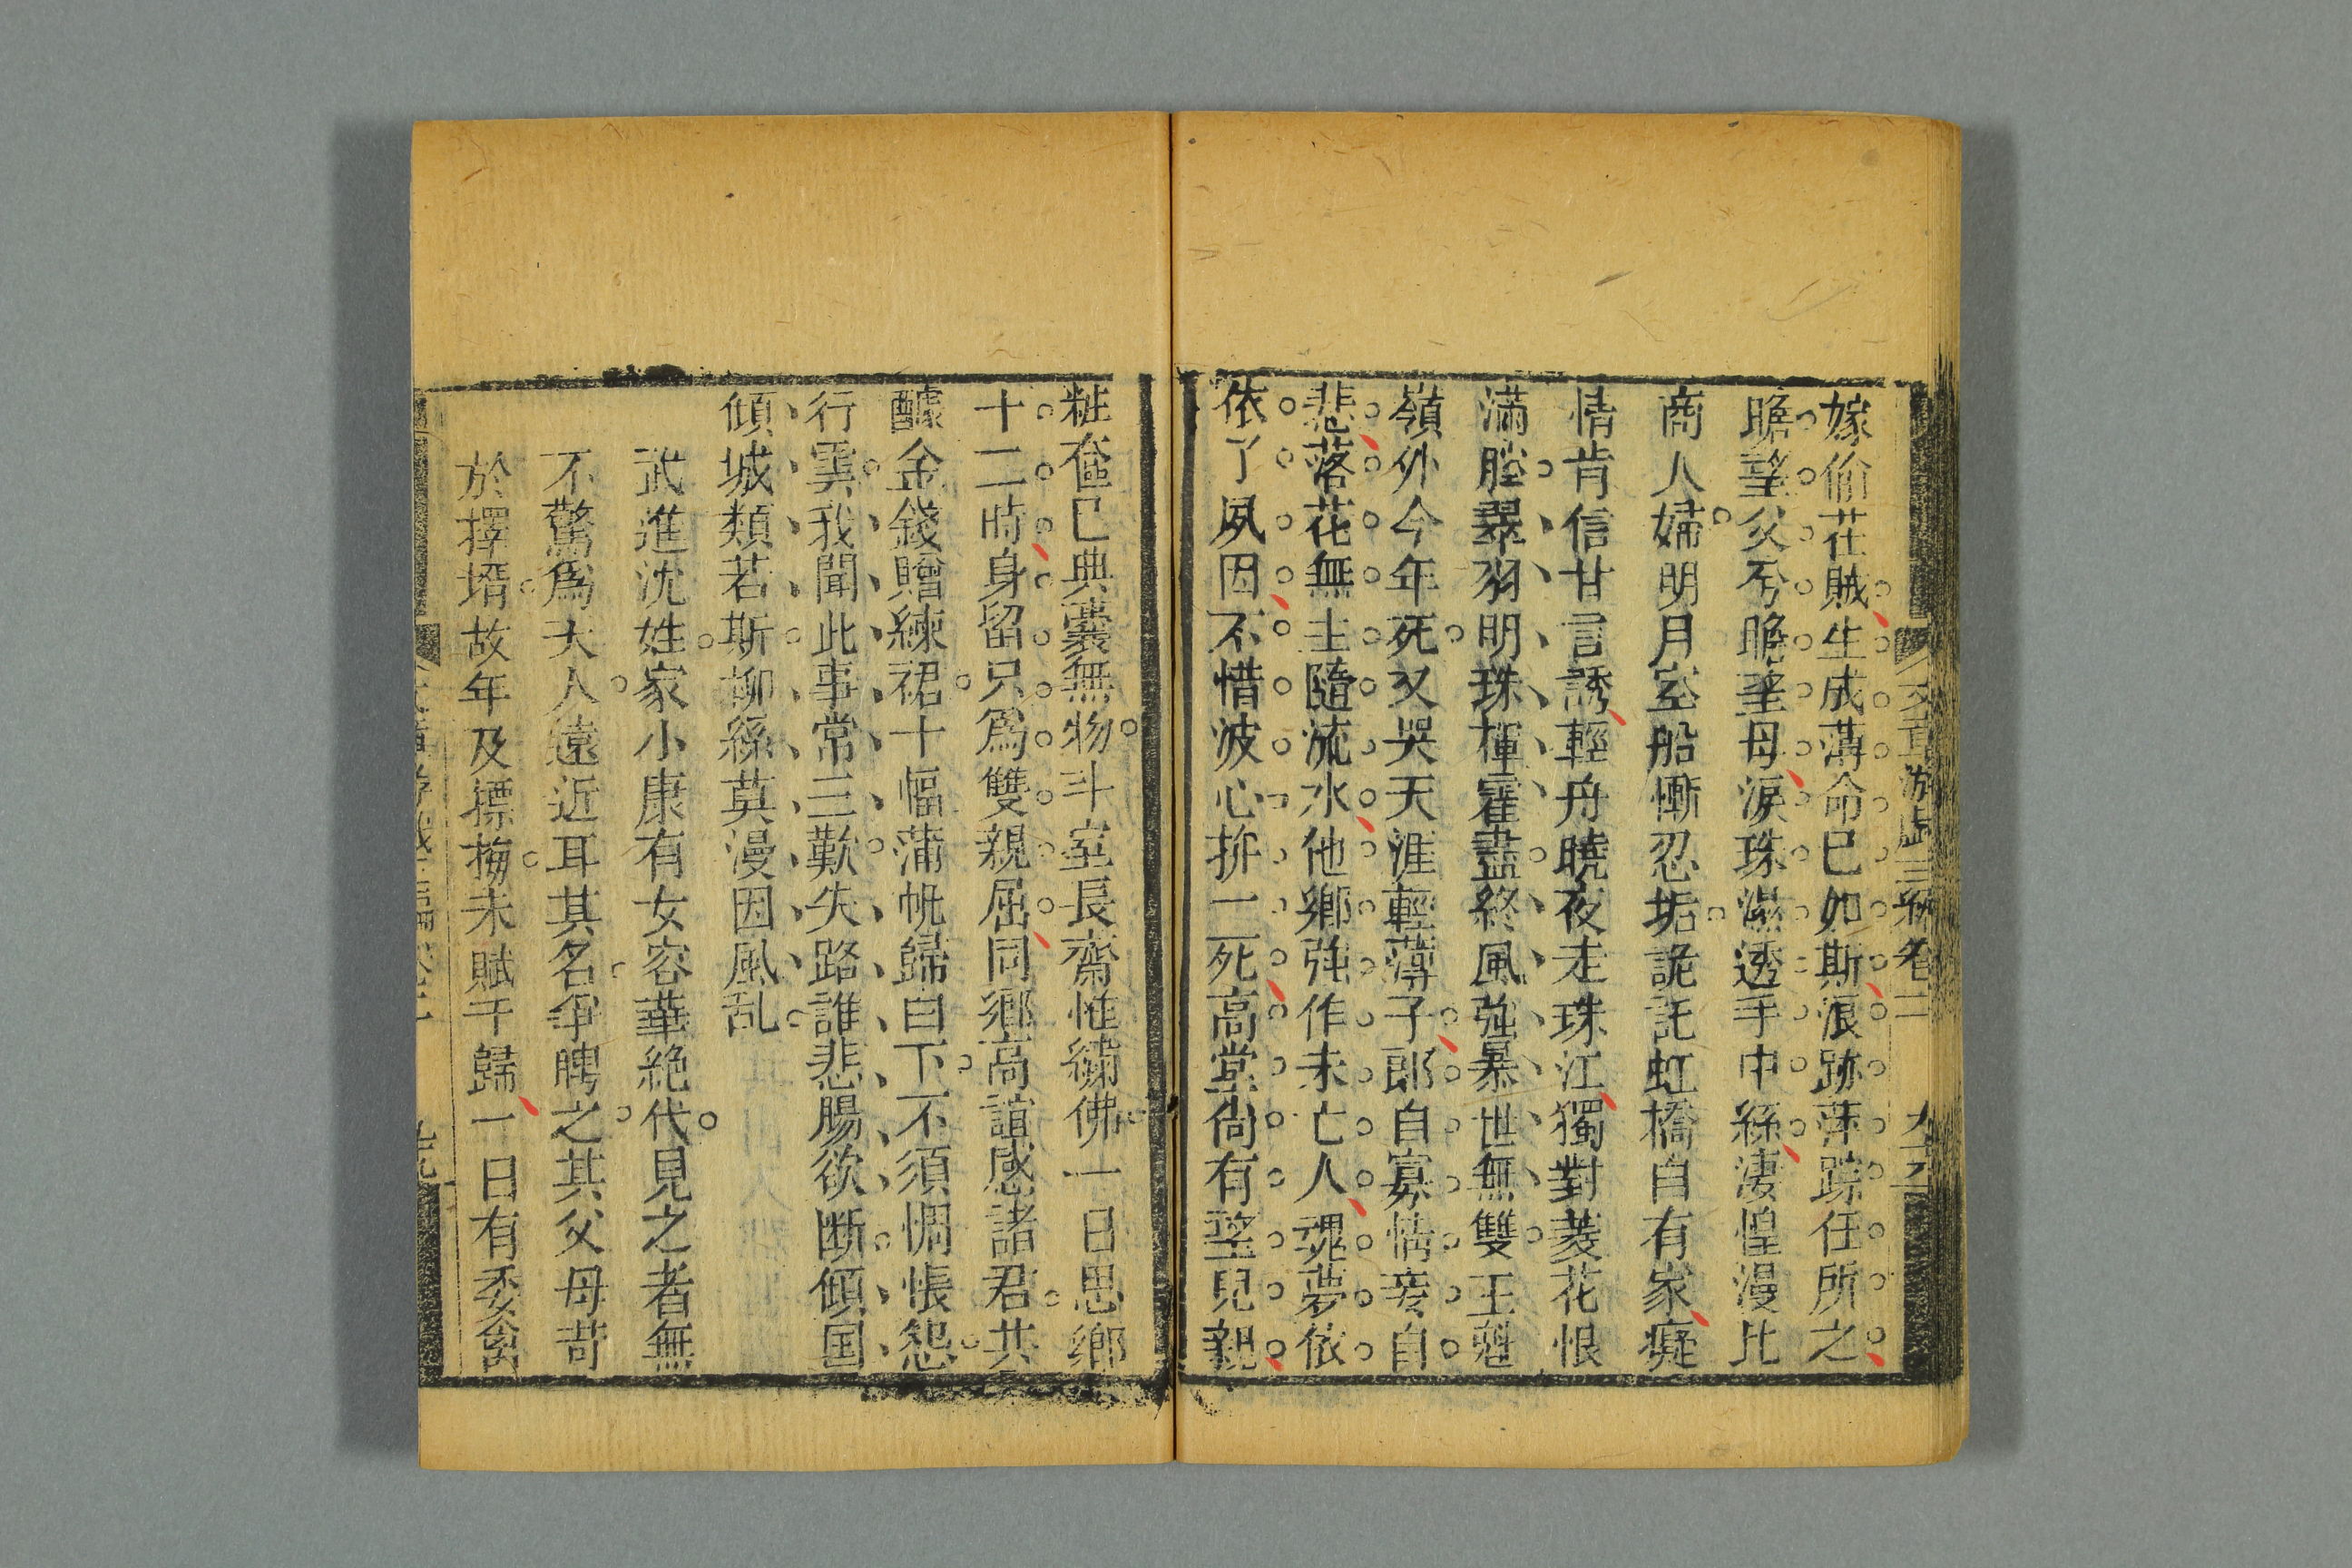 文章游戲三編卷二
嫁偷在賊生成薄命已如斯浪跡萍踪任所之
瞻望父兮瞻望母淚珠濕透手中絲淒惶漫比
商人婦明月空船慚忍垢詭託虹橋自有家癡
情肯信甘言誘輕舟曉夜走珠江獨對菱花恨
滿腔翠羽明珠揮霍盡終風強暴世無雙王魁
嶺外今年死又哭天涯輕薄子郎自寡情妾自
悲落花無主隨流水他鄉強作未亡人魂夢依
依了夙因不惜波心拚一死高堂尚有望兒親
粧奩已典囊無物斗室長齋惟繡佛一日思鄉
十二時身留只為雙親屈同鄉高誼感諸君共
醵金錢贈練裙十幅蒲帆歸白下不須惆悵怨
行雲我聞此事常三歎失路誰悲腸欲断傾国
傾城類若斯柳絲莫漫因風乱
武進沈姓家小康有女容華絕代見之者無
不驚為天人遠近耳其名爭聘之其父母苛
於擇壻故年及摽梅未賦于歸一日有委禽